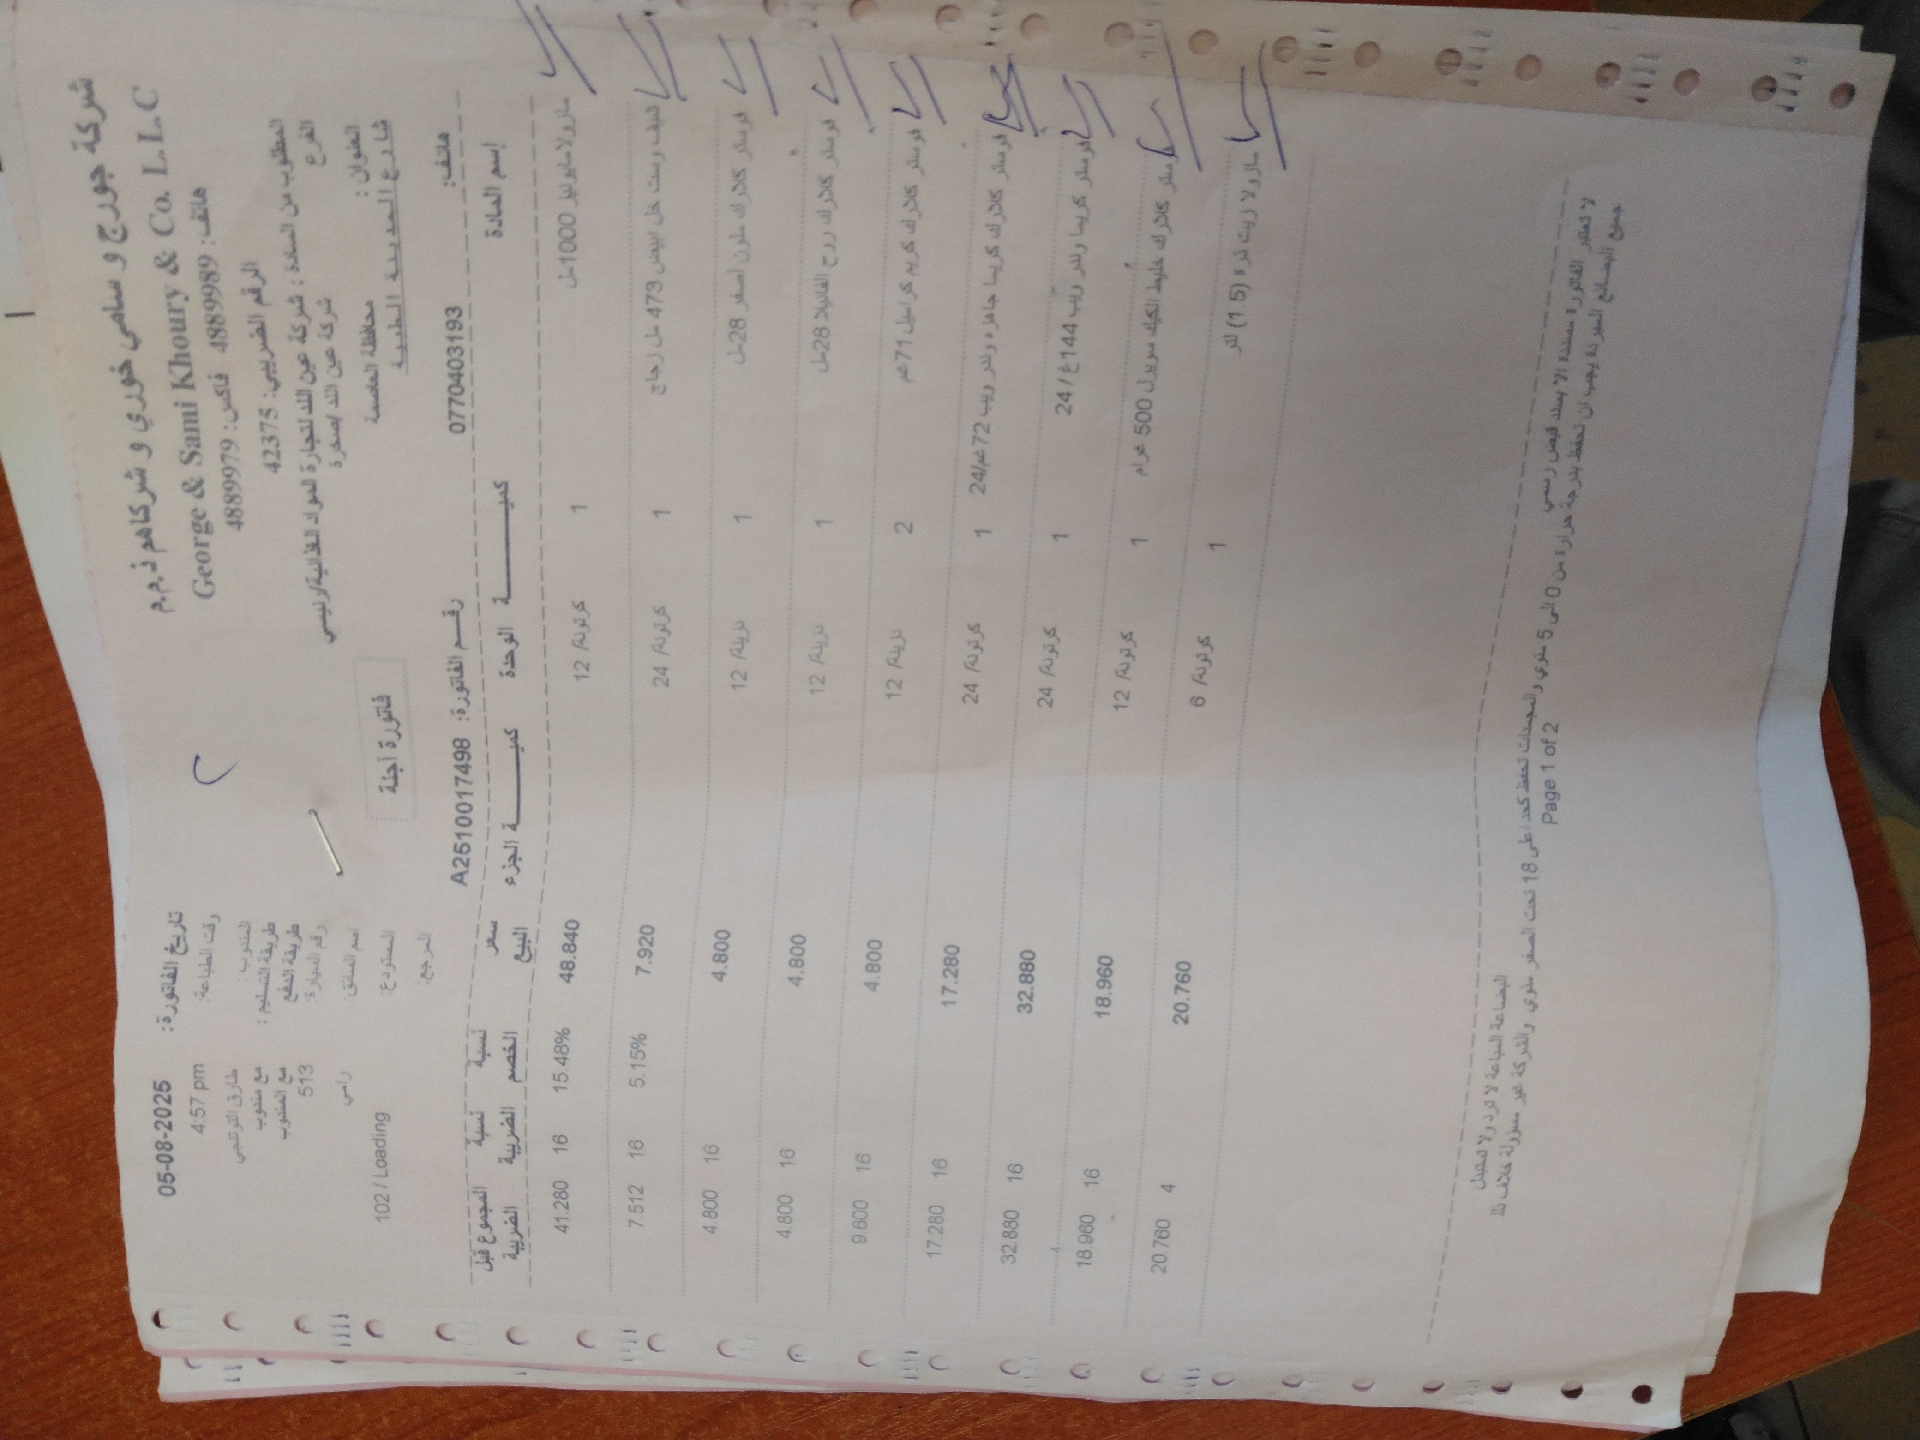 شركة جورج و سامي خوري و شركاهم ذ.م.م
George & Sami Khoury & Co. L.L.C
هاتف: 4889989 فاكس: 4889979
الرقم الضريبي: 42375
المطلوب من السادة: شركة عين اللد للتجارة المواد الغذائية/رئيسي
الفرع شركة عين اللد /صخرة
العنوان: محافظة العاصمة
شارع المدينة الطبية
هاتف: 0770403193
تاريخ الفاتورة: 05-08-2025
وقت الطباعة: 4:57 pm
المندوب:
طريقة التسليم: مع مندوب
طريقة الدفع مع المندوب
رقم السيارة: 513
رامي
المستودع: 102 / Loading
المرجع:
فاتورة آجلة
رقم الفاتورة: A2510017498
إسم المادة كميـة الوحدة كميـة الجزء سعر البيع نسبة الخصم نسبة الضريبة المجموع قبل الضريبة
1000مل 1 كرتونة/ 12 48.840 15.48% 16 41.280
شيف رست خل ابيض 473 مل زجاج 1 كرتونة/ 24 7.920 5.15% 16 7.512
فوستر كلارك ملون اصفر 28مل 1 دزينة/ 12 4.800 16 4.800
فوستر كلارك روح الفانيلا 28مل 1 دزينة/ 12 4.800 16 4.800
فوستر كلارك كريم كراميل 71غم 2 دزينة/ 12 4.800 16 9.600
فوستر كلارك كريما جاهزة وندر ويب 72غم/24 1 كرتونة/ 24 17.280 16 17.280
فوستر كريما وندر ويب 144غ / 24 1 كرتونة/ 24 32.880 16 32.880
فوستر كلارك خليط الكيك 500 غرام 1 كرتونة/ 12 18.960 16 18.960
مازولا زيت ذرة (1.5) لتر 1 كرتونة/ 6 20.760 4 20.760
لا تعتبر الفاتورة مسددة الا بسند قبض رسمي
البضاعة المباعة لا ترد ولا تستبدل
جميع البضائع المبردة يجب ان تحفظ بدرجة حرارة من 0 الى 5 مئوي والمجمدات تحفظ كحد اعلى 18 تحت الصفر مئوي والشركة غير مسؤولة خلاف ذلك
Page 1 of 2